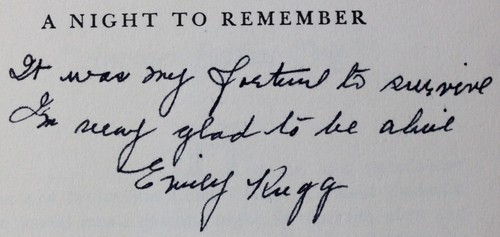 A NIGHT TO REMEMBER
It was my fortune to survive
Im very glad to be alive
Emily Rugg